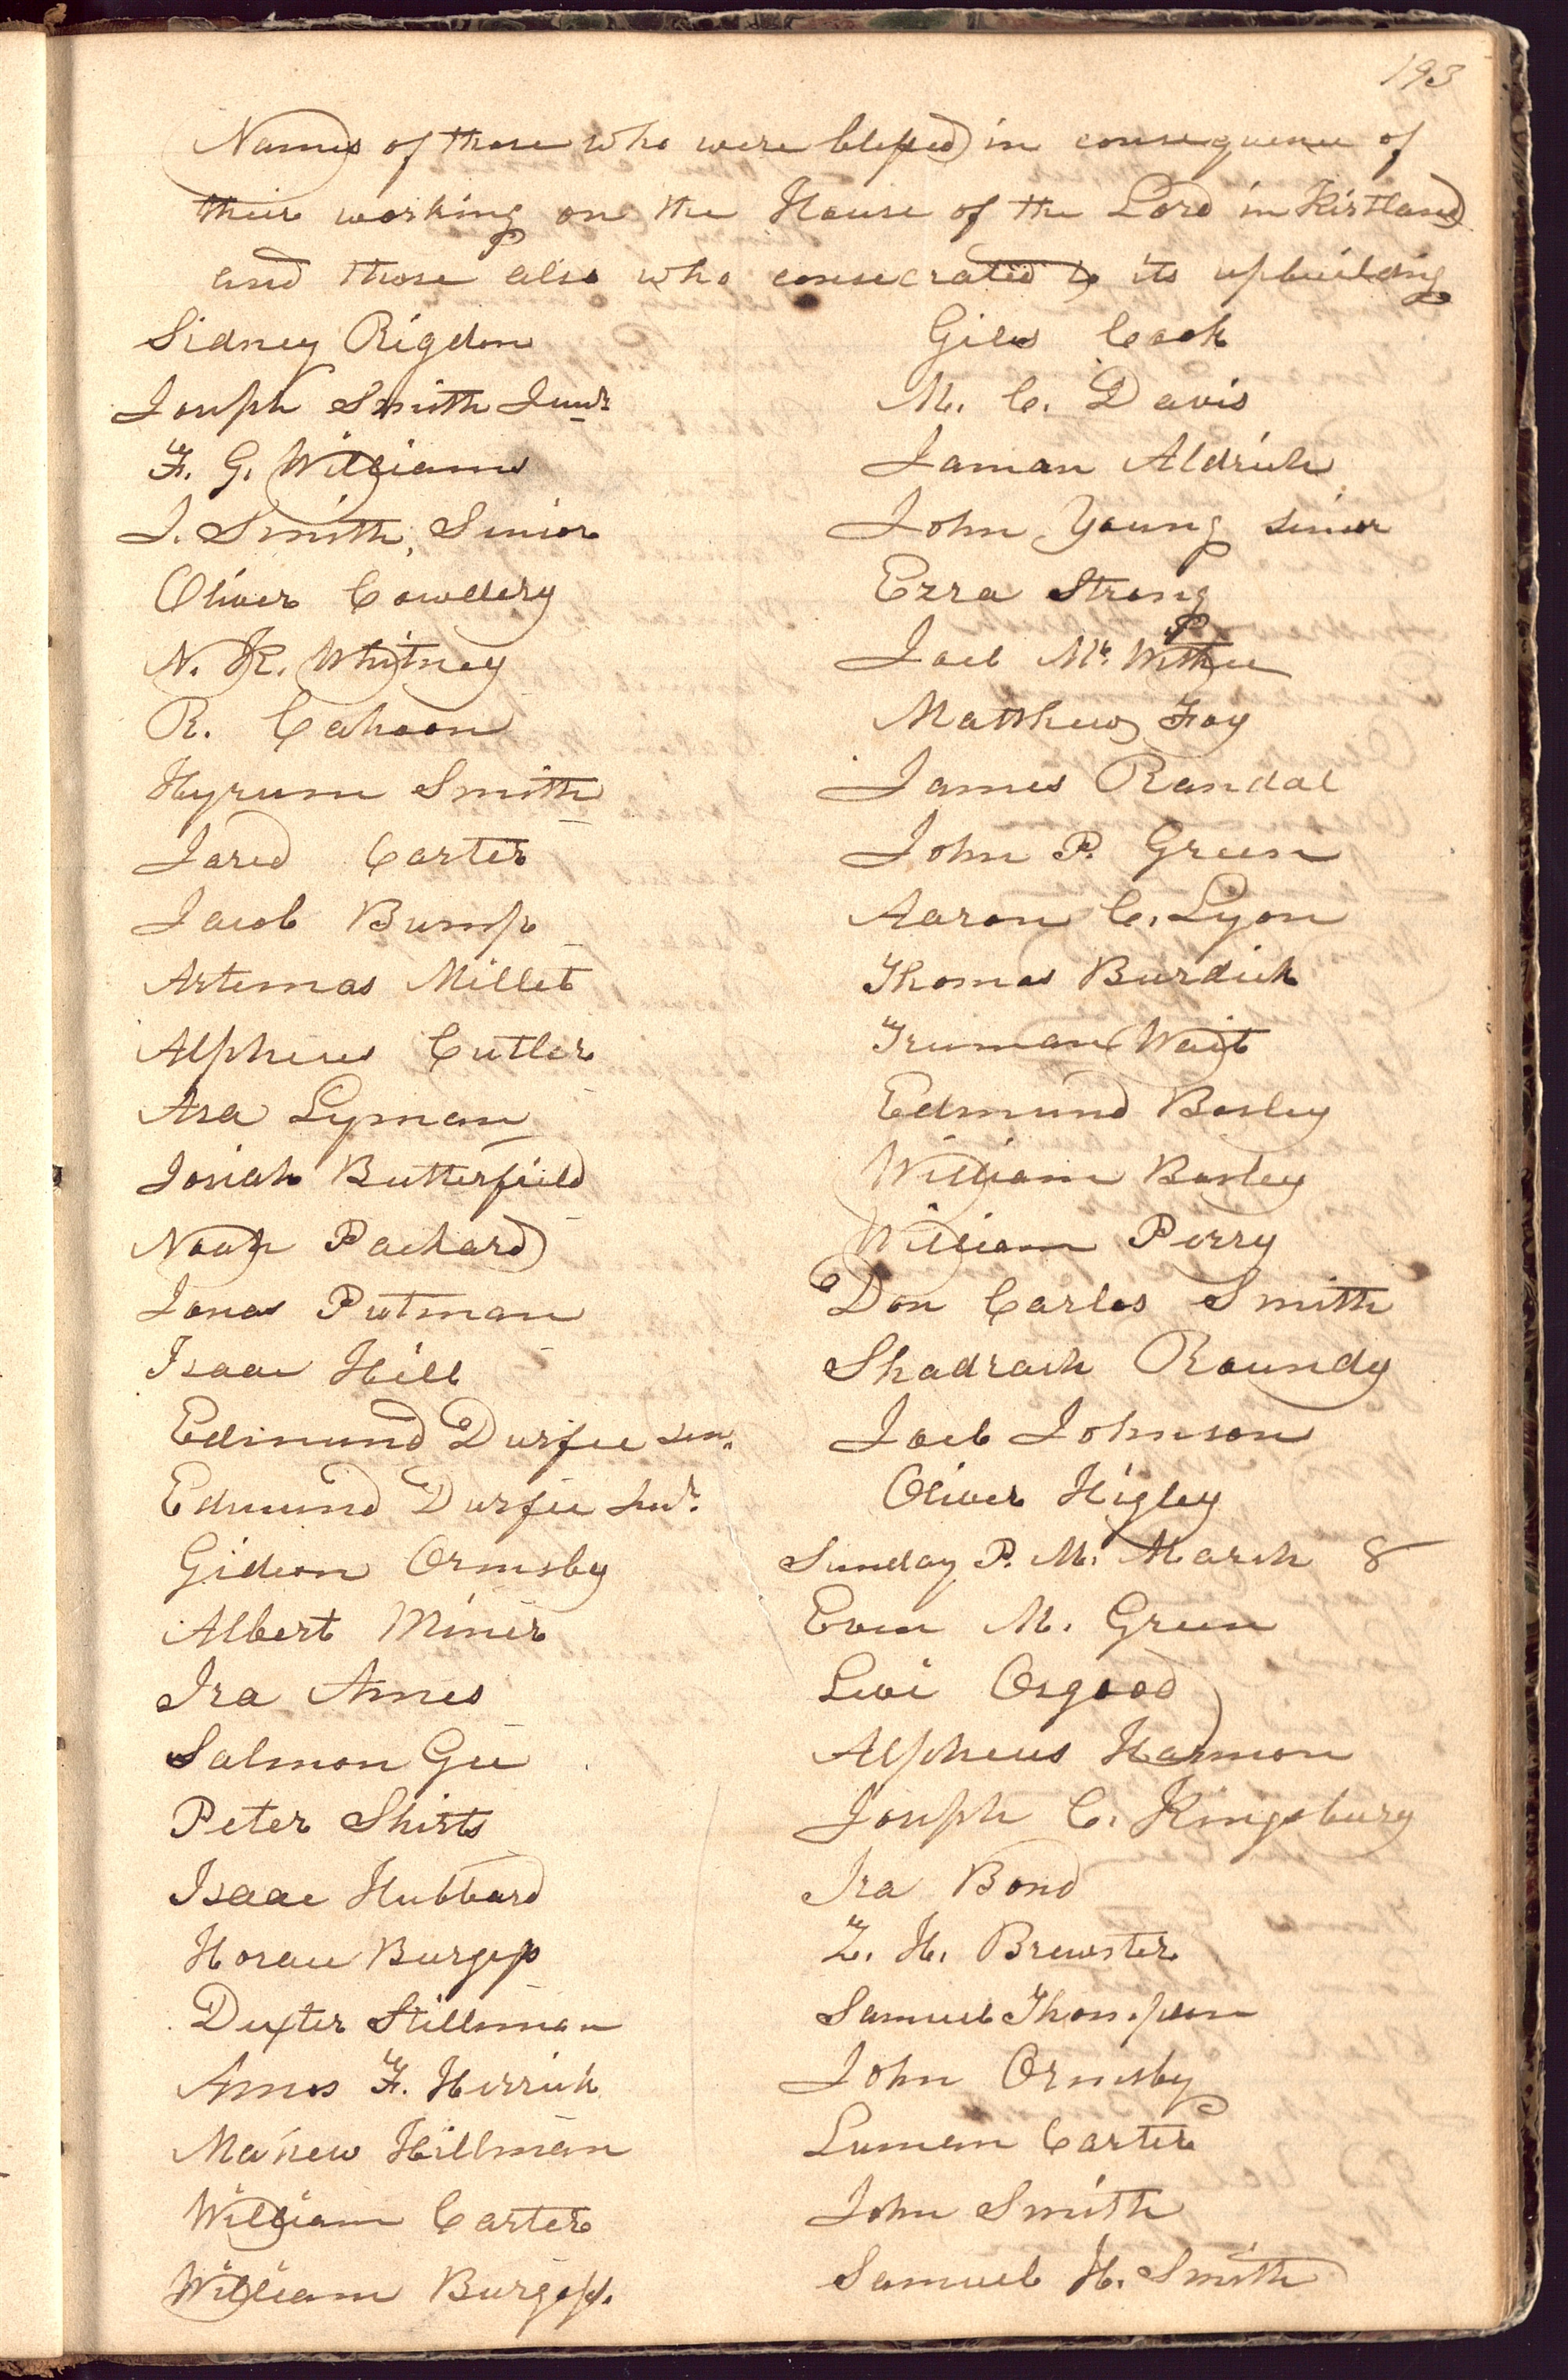 193
Names of those who were blessed in consequence of
their working on the House of the Lord in Kirtland
and those also who consecrated to its upbuilding
Sidney Rigdon
Joseph Smith Junr.
F. G. Williams
J. Smith, Senior
Oliver Cowdery
N. K. Whitney
R. Cahoon
Hyrum Smith
Jared Carter
Jacob Bump
Artemas Millet
Alpheus Cutler
Asa Lyman
Josiah Butterfield
Noah Packard
Jonas Putman
Isaac Hill
Edmund Durfee sen.
Edmund Durfee Junr.
Gideon Ormsby
Albert Miner
Ira Ames
Salmon Gee
Peter Shirts
Isaac Hubbard
Horace Burgess
Dexter Stillman
Amos F. Herrick
Mahew Hillman
William Carter
William Burgess.
Giles Cook
M. C. Davis
Jaman Aldrich
John Young senior
Ezra Strong
Joel Mc. Withee
Matthew Foy
James Randal
John P. Green
Aaron C. Lyon
Thomas Burdick
Truman Wait
Edmund Bosley
William Bosley
William Perry
Don Carlos Smith
Shadrach Roundy
Joel Johnson
Oliver Higley
Sunday P. M. March 8
Evan M. Green
Levi Osgood
Alpheus Harmon
Joseph C. Kingsbury
Ira Bond
Z. H. Brewster
Samuel Thompson
John Ormsby
Luman Carter
John Smith
Samuel H. Smith